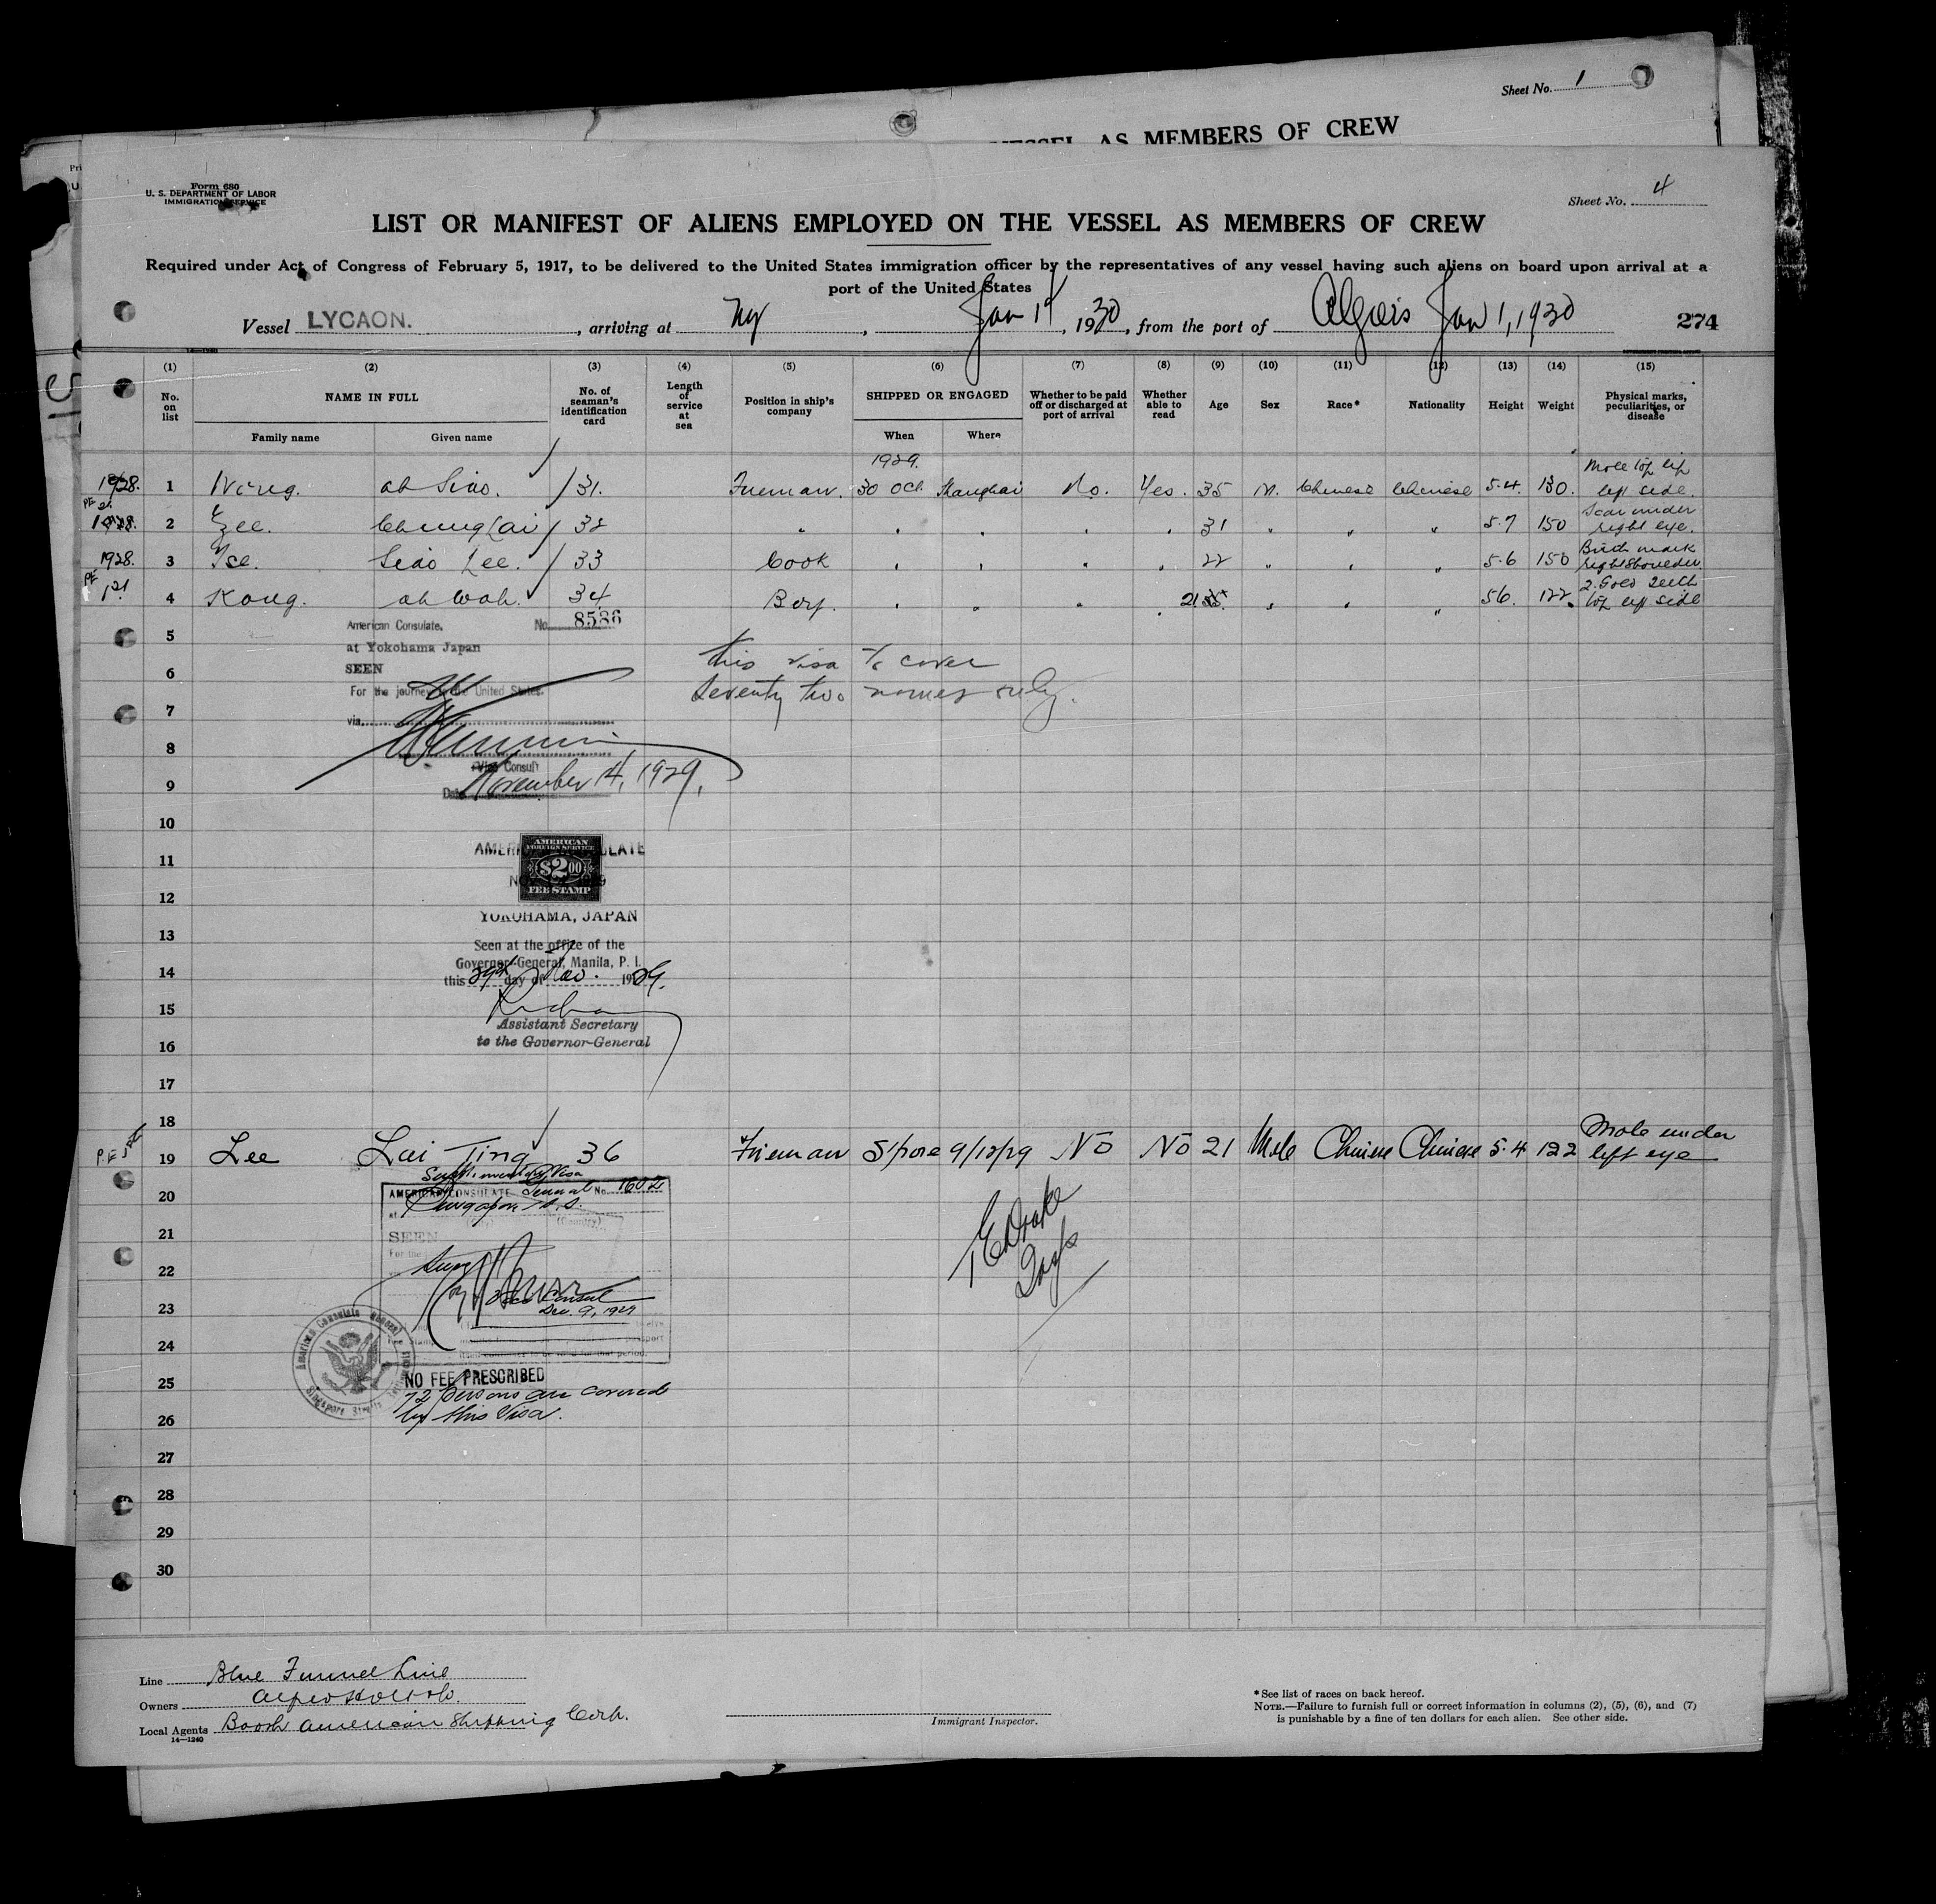 Sheet No. 1
VESSEL AS MEMBERS OF CREW
Form 680
U. S. DEPARTMENT OF LABOR
IMMIGRATION SERVICE
Sheet No. 4
LIST OR MANIFEST OF ALIENS EMPLOYED ON THE VESSEL AS MEMBERS OF CREW
Required under Act of Congress of February 5, 1917, to be delivered to the United States immigration officer by the representatives of any vessel having such aliens on board upon arrival at a
port of the United States
Vessel LYCAON. , arriving at Ny , Jan 14, 1930, from the port of Algeirs Jan 1, 1930 274
(1) (2) (3) (4) (5) (6) (7) (8) (9) (10) (11) (12) (13) (14) (15)
No. on list NAME IN FULL No. of seaman's identification card Length of service at sea Position in ship's company SHIPPED OR ENGAGED Whether to be paid off or discharged at port of arrival Whether able to read Age Sex Race* Nationality Height Weight Physical marks, peculiarities, or disease
Family name Given name When Where
1929.
1928. 1 Wong. ah Siao. 31. Fireman. 30 Oct. Shanghai No. Yes. 35 M. Chinese Chinese 5.4. 130. Mole top lip left side.
2 Zee. Chung Lai 32 " " " " " 31 " " " 5.7 150 Scar under right eye.
1928. 3 Tse. Siao Lee. 33 Cook " " " " 22 " " " 5.6 150 Birth mark right shoulder.
4 Kong. ah Wah. 34 Boy. " " " " 21 " " " 56. 122. 2 Gold teeth top left side
5
American Consulate. No. 8586
at Yokohama Japan
SEEN
6
this visa to cover
seventy two names only.
For the journey to the United States.
7
via
8
Vice Consul
9
Date November 14, 1929.
10
11
AMERICAN CONSULATE
AMERICAN
FOREIGN SERVICE
$2.00
FEE STAMP
12
YOKOHAMA, JAPAN
13
Seen at the office of the
Governor-General, Manila, P. I.
14
this 29th day of Nov. 1929.
15
Assistant Secretary
to the Governor-General
16
17
18
P.E. 19 Lee Lai Ting 36 Fireman S'pore 9/12/29 No No 21 Male Chinese Chinese 5.4 122 Mole under left eye
Supplementary Visa
AMERICAN CONSULATE General No. 1602
20
at Singapore, S.S.
(Country)
21
SEEN
For the
22
23
Vice Consul
Dec. 9, 1929
24
American Consulate General
Singapore Straits
25
NO FEE PRESCRIBED
72 persons are covered
by this Visa.
26
27
28
29
30
Line Blue Funnel Line
Owners Alfred Holt & Co.
Local Agents Booth American Shipping Corp.
14—1240
Immigrant Inspector.
* See list of races on back hereof.
NOTE.—Failure to furnish full or correct information in columns (2), (5), (6), and (7)
is punishable by a fine of ten dollars for each alien. See other side.